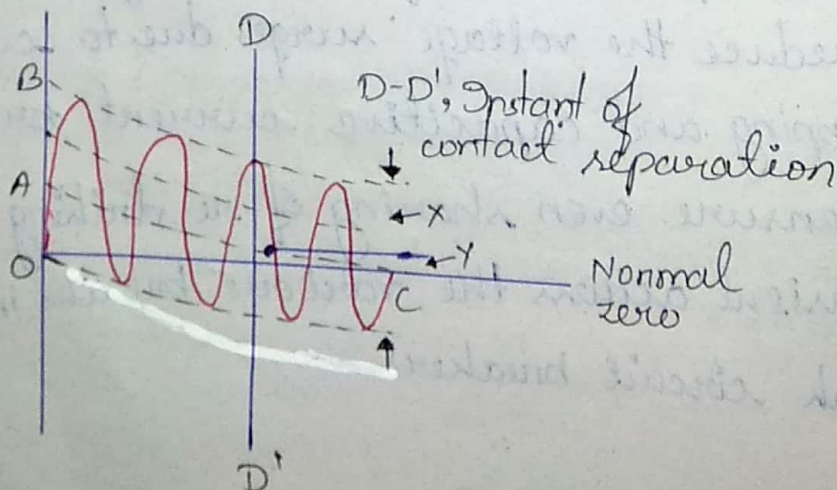 D
B
D-D', Instant of
contact separation
A
X
Y
O
C
Normal
zero
D'